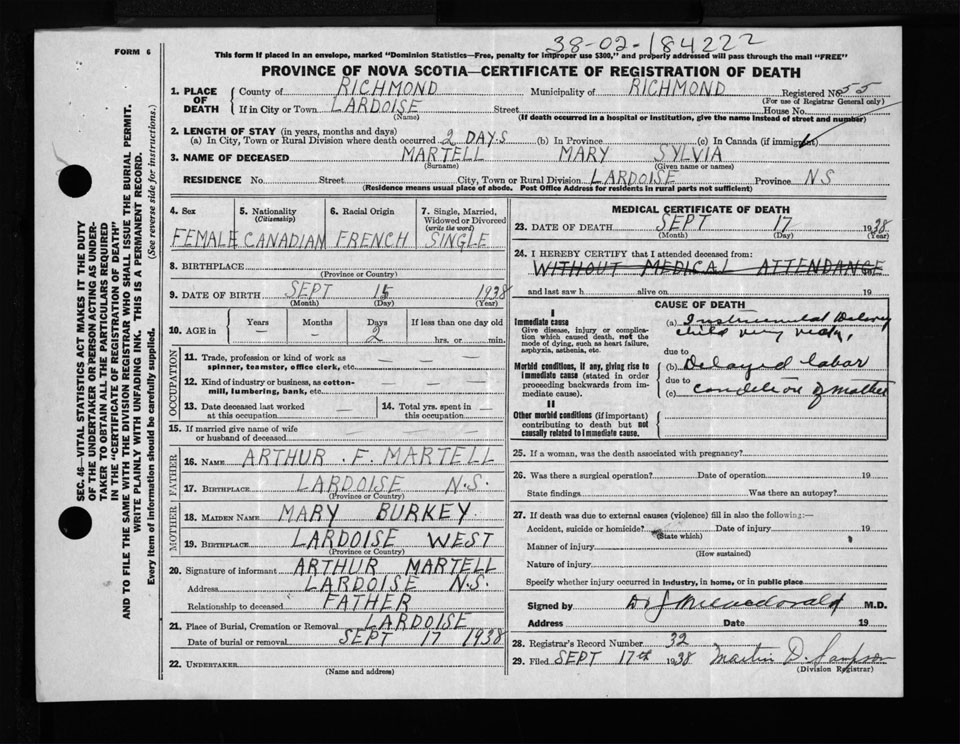 38-02-184222
FORM 6
This form if placed in an envelope, marked "Dominion Statistics—Free, penalty for improper use $300," and properly addressed will pass through the mail "FREE"
PROVINCE OF NOVA SCOTIA—CERTIFICATE OF REGISTRATION OF DEATH
1. PLACE OF DEATH
County of RICHMOND Municipality of RICHMOND Registered No. 55
(For use of Registrar General only)
If in City or Town LARDOISE Street House No.
(Name) (If death occurred in a hospital or institution, give the name instead of street and number)
2. LENGTH OF STAY (in years, months and days)
(a) In City, Town or Rural Division where death occurred 2 DAYS (b) In Province (c) In Canada (if immigrant)
3. NAME OF DECEASED MARTELL MARY SYLVIA
(Surname) (Given name or names)
RESIDENCE No. Street City, Town or Rural Division LARDOISE Province NS
(Residence means usual place of abode. Post Office Address for residents in rural parts not sufficient)
4. Sex
FEMALE
5. Nationality
(Citizenship)
CANADIAN
6. Racial Origin
FRENCH
7. Single, Married, Widowed or Divorced
(write the word)
SINGLE
8. BIRTHPLACE
(Province or Country)
9. DATE OF BIRTH SEPT 15 1938
(Month) (Day) (Year)
10. AGE in Years Months Days If less than one day old
— — 2 hrs. or min.
OCCUPATION
11. Trade, profession or kind of work as spinner, teamster, office clerk, etc. —
12. Kind of industry or business, as cotton-mill, lumbering, bank, etc. —
13. Date deceased last worked at this occupation —
14. Total yrs. spent in this occupation —
15. If married give name of wife or husband of deceased
FATHER
16. NAME ARTHUR . F. MARTELL
17. BIRTHPLACE LARDOISE N.S.
(Province or Country)
MOTHER
18. MAIDEN NAME MARY BURKEY
19. BIRTHPLACE LARDOISE WEST
(Province or Country)
20. Signature of informant ARTHUR MARTELL
Address LARDOISE N.S.
Relationship to deceased FATHER
21. Place of Burial, Cremation or Removal LARDOISE
Date of burial or removal SEPT 17 1938
22. UNDERTAKER
(Name and address)
MEDICAL CERTIFICATE OF DEATH
23. DATE OF DEATH SEPT 17 1938
(Month) (Day) (Year)
24. I HEREBY CERTIFY that I attended deceased from:
WITHOUT MEDICAL ATTENDANCE 19
and last saw h alive on 19
CAUSE OF DEATH
I
Immediate cause
Give disease, injury or complication which caused death, not the mode of dying, such as heart failure, asphyxia, asthenia, etc.
(a) Instrumental Delivery
child very
due to
Morbid conditions, if any, giving rise to immediate cause (stated in order proceeding backwards from immediate cause).
(b) Delayed labor
due to
(c) condition of mother
II
Other morbid conditions (if important) contributing to death but not causally related to immediate cause.
25. If a woman, was the death associated with pregnancy?
26. Was there a surgical operation? Date of operation 19
State findings Was there an autopsy?
27. If death was due to external causes (violence) fill in also the following:—
Accident, suicide or homicide? Date of injury 19
(State which)
Manner of injury
(How sustained)
Nature of injury
Specify whether injury occurred in industry, in home, or in public place
Signed by M.D.
Address Date 19
28. Registrar's Record Number 32
29. Filed SEPT 17th 1938 Martin D. Sampson
(Division Registrar)
SEC. 46—VITAL STATISTICS ACT MAKES IT THE DUTY
OF THE UNDERTAKER OR PERSON ACTING AS UNDER-
TAKER TO OBTAIN ALL THE PARTICULARS REQUIRED
IN THE "CERTIFICATE OF REGISTRATION OF DEATH"
AND TO FILE THE SAME WITH THE DIVISION REGISTRAR WHO SHALL ISSUE THE BURIAL PERMIT.
WRITE PLAINLY WITH UNFADING INK. THIS IS A PERMANENT RECORD.
(See reverse side for instructions.)
Every item of information should be carefully supplied.